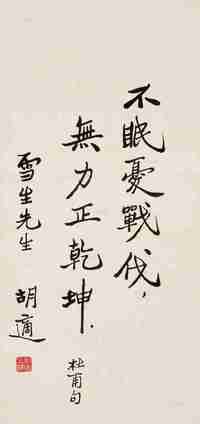 不眠憂戰伐，
無力正乾坤．
杜甫句
雪生先生
胡適